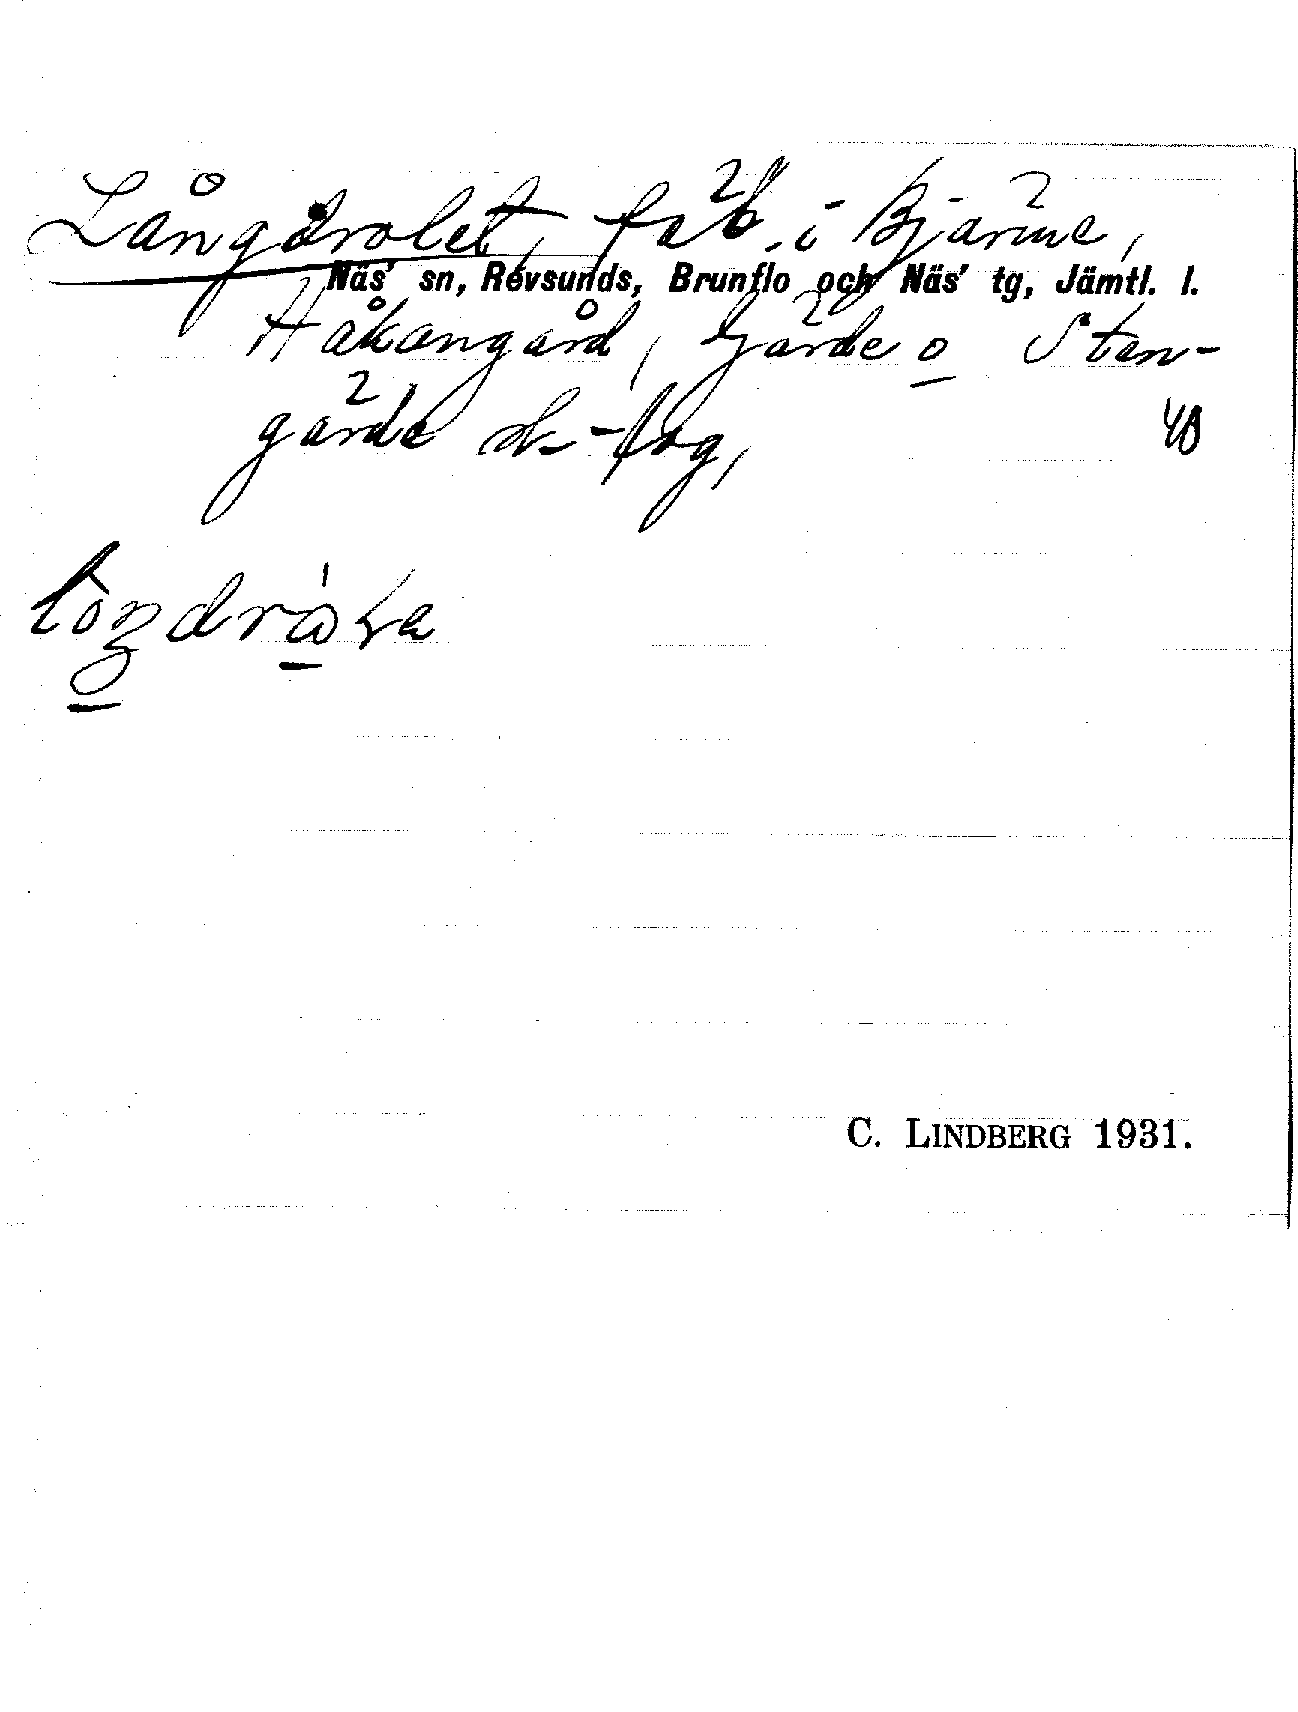 Långdrolet, fäb. i Bjärme,
Näs' sn, Revsunds, Brunflo och Näs' tg, Jämtl. l.
Håkangård, Gärde o Sten-
gärde sk-lag, 40
C. LINDBERG 1931.